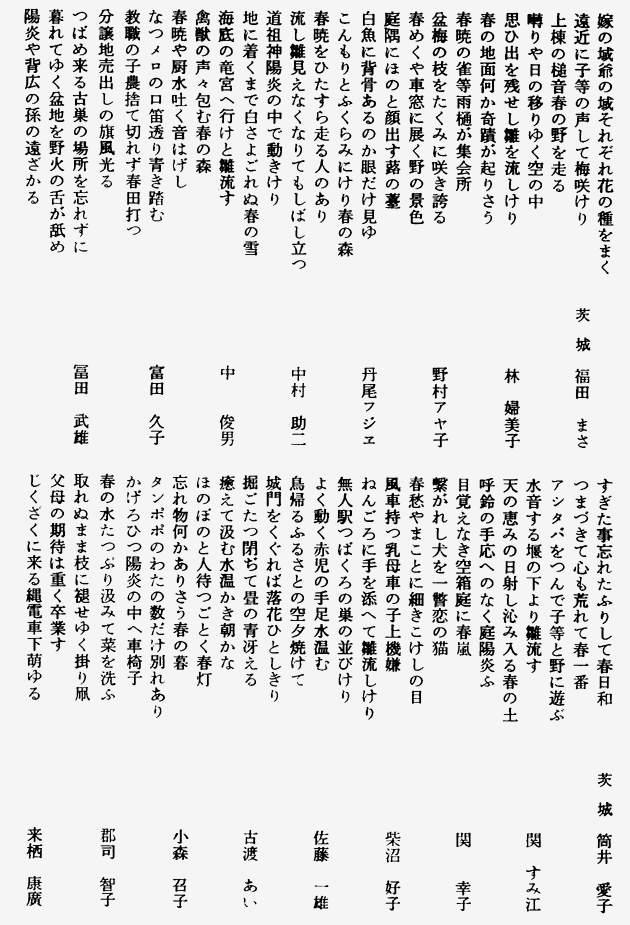 嫁の城爺の城それぞれ花の種をまく
遠近に子等の声して梅咲けり
上棟の槌音春の野を走る
茨城 福田 まさ
囀りや日の移りゆく空の中
思ひ出を残せし雛を流しけり
春の地面何か奇蹟が起りさう
林 婦美子
春暁の雀等雨樋が集会所
盆梅の枝をたくみに咲き誇る
春めくや車窓に展く野の景色
野村アヤ子
庭隅にほのと顔出す蕗の薹
白魚に背骨あるのか眼だけ見ゆ
こんもりとふくらみにけり春の森
丹尾フジヱ
春暁をひたすら走る人のあり
流し雛見えなくなりてもしばし立つ
道祖神陽炎の中で動きけり
中村 助二
地に着くまで白さよごれぬ春の雪
海底の竜宮へ行けと雛流す
禽獣の声々包む春の森
中 俊男
春暁や厨水吐く音はげし
なつメロの口笛透り青き踏む
教職の子農捨て切れず春田打つ
富田 久子
分譲地売出しの旗風光る
つばめ来る古巣の場所を忘れずに
暮れてゆく盆地を野火の舌が舐め
陽炎や背広の孫の遠ざかる
冨田 武雄
すぎた事忘れたふりして春日和
つまづきて心も荒れて春一番
アシタバをつんで子等と野に遊ぶ
茨城 筒井 愛子
水音する堰の下より雛流す
天の恵みの日射し沁み入る春の土
呼鈴の手応へのなく庭陽炎ふ
関 すみ江
目覚えなき空箱庭に春嵐
繋がれし犬を一瞥恋の猫
春愁やまことに細きこけしの目
関 幸子
風車持つ乳母車の子上機嫌
ねんごろに手を添へて雛流しけり
無人駅つばくろの巣の並びけり
柴沼 好子
よく動く赤児の手足水温む
鳥帰るふるさとの空夕焼けて
城門をくぐれば落花ひとしきり
佐藤 一雄
掘ごたつ閉ぢて畳の青冴える
癒えて汲む水温かき朝かな
ほのぼのと人待つごとく春灯
古渡 あい
忘れ物何かありさう春の暮
タンポポのわたの数だけ別れあり
かげろひつ陽炎の中へ車椅子
小森 召子
春の水たつぷり汲みて菜を洗ふ
取れぬまま枝に褪せゆく掛り凧
父母の期待は重く卒業す
郡司 智子
じくざくに来る縄電車下萌ゆる
来栖 康廣